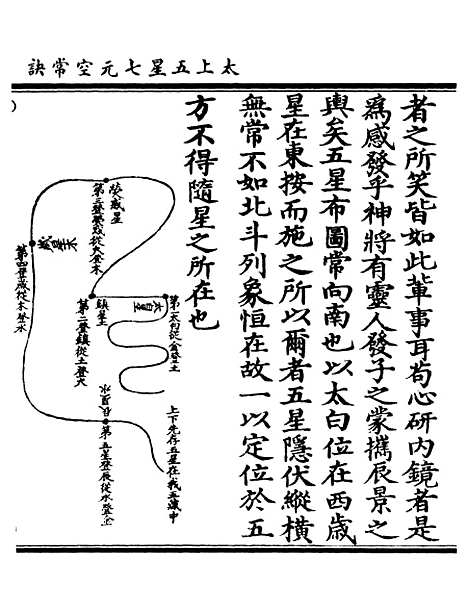 太上五星七元空常訣
者之所笑皆如此軰事耳茍心研内鏡者是
爲感發乎神將有靈人發子之蒙攜辰景之
輿矣五星布圖常向南也以太白位在西歲
星在東按而施之所以爾者五星隱伏縱橫
無常不如北斗列象恒在故一以定位於五
方不得隨星之所在也
熒惑星
第三登熒惑從火登木
歲星
第四登歲從木登水
鎮星
第二登鎮從土登火
太白星
第一太白從金登土
辰星
第五星登辰從水登金
上下先存五星在我五藏中